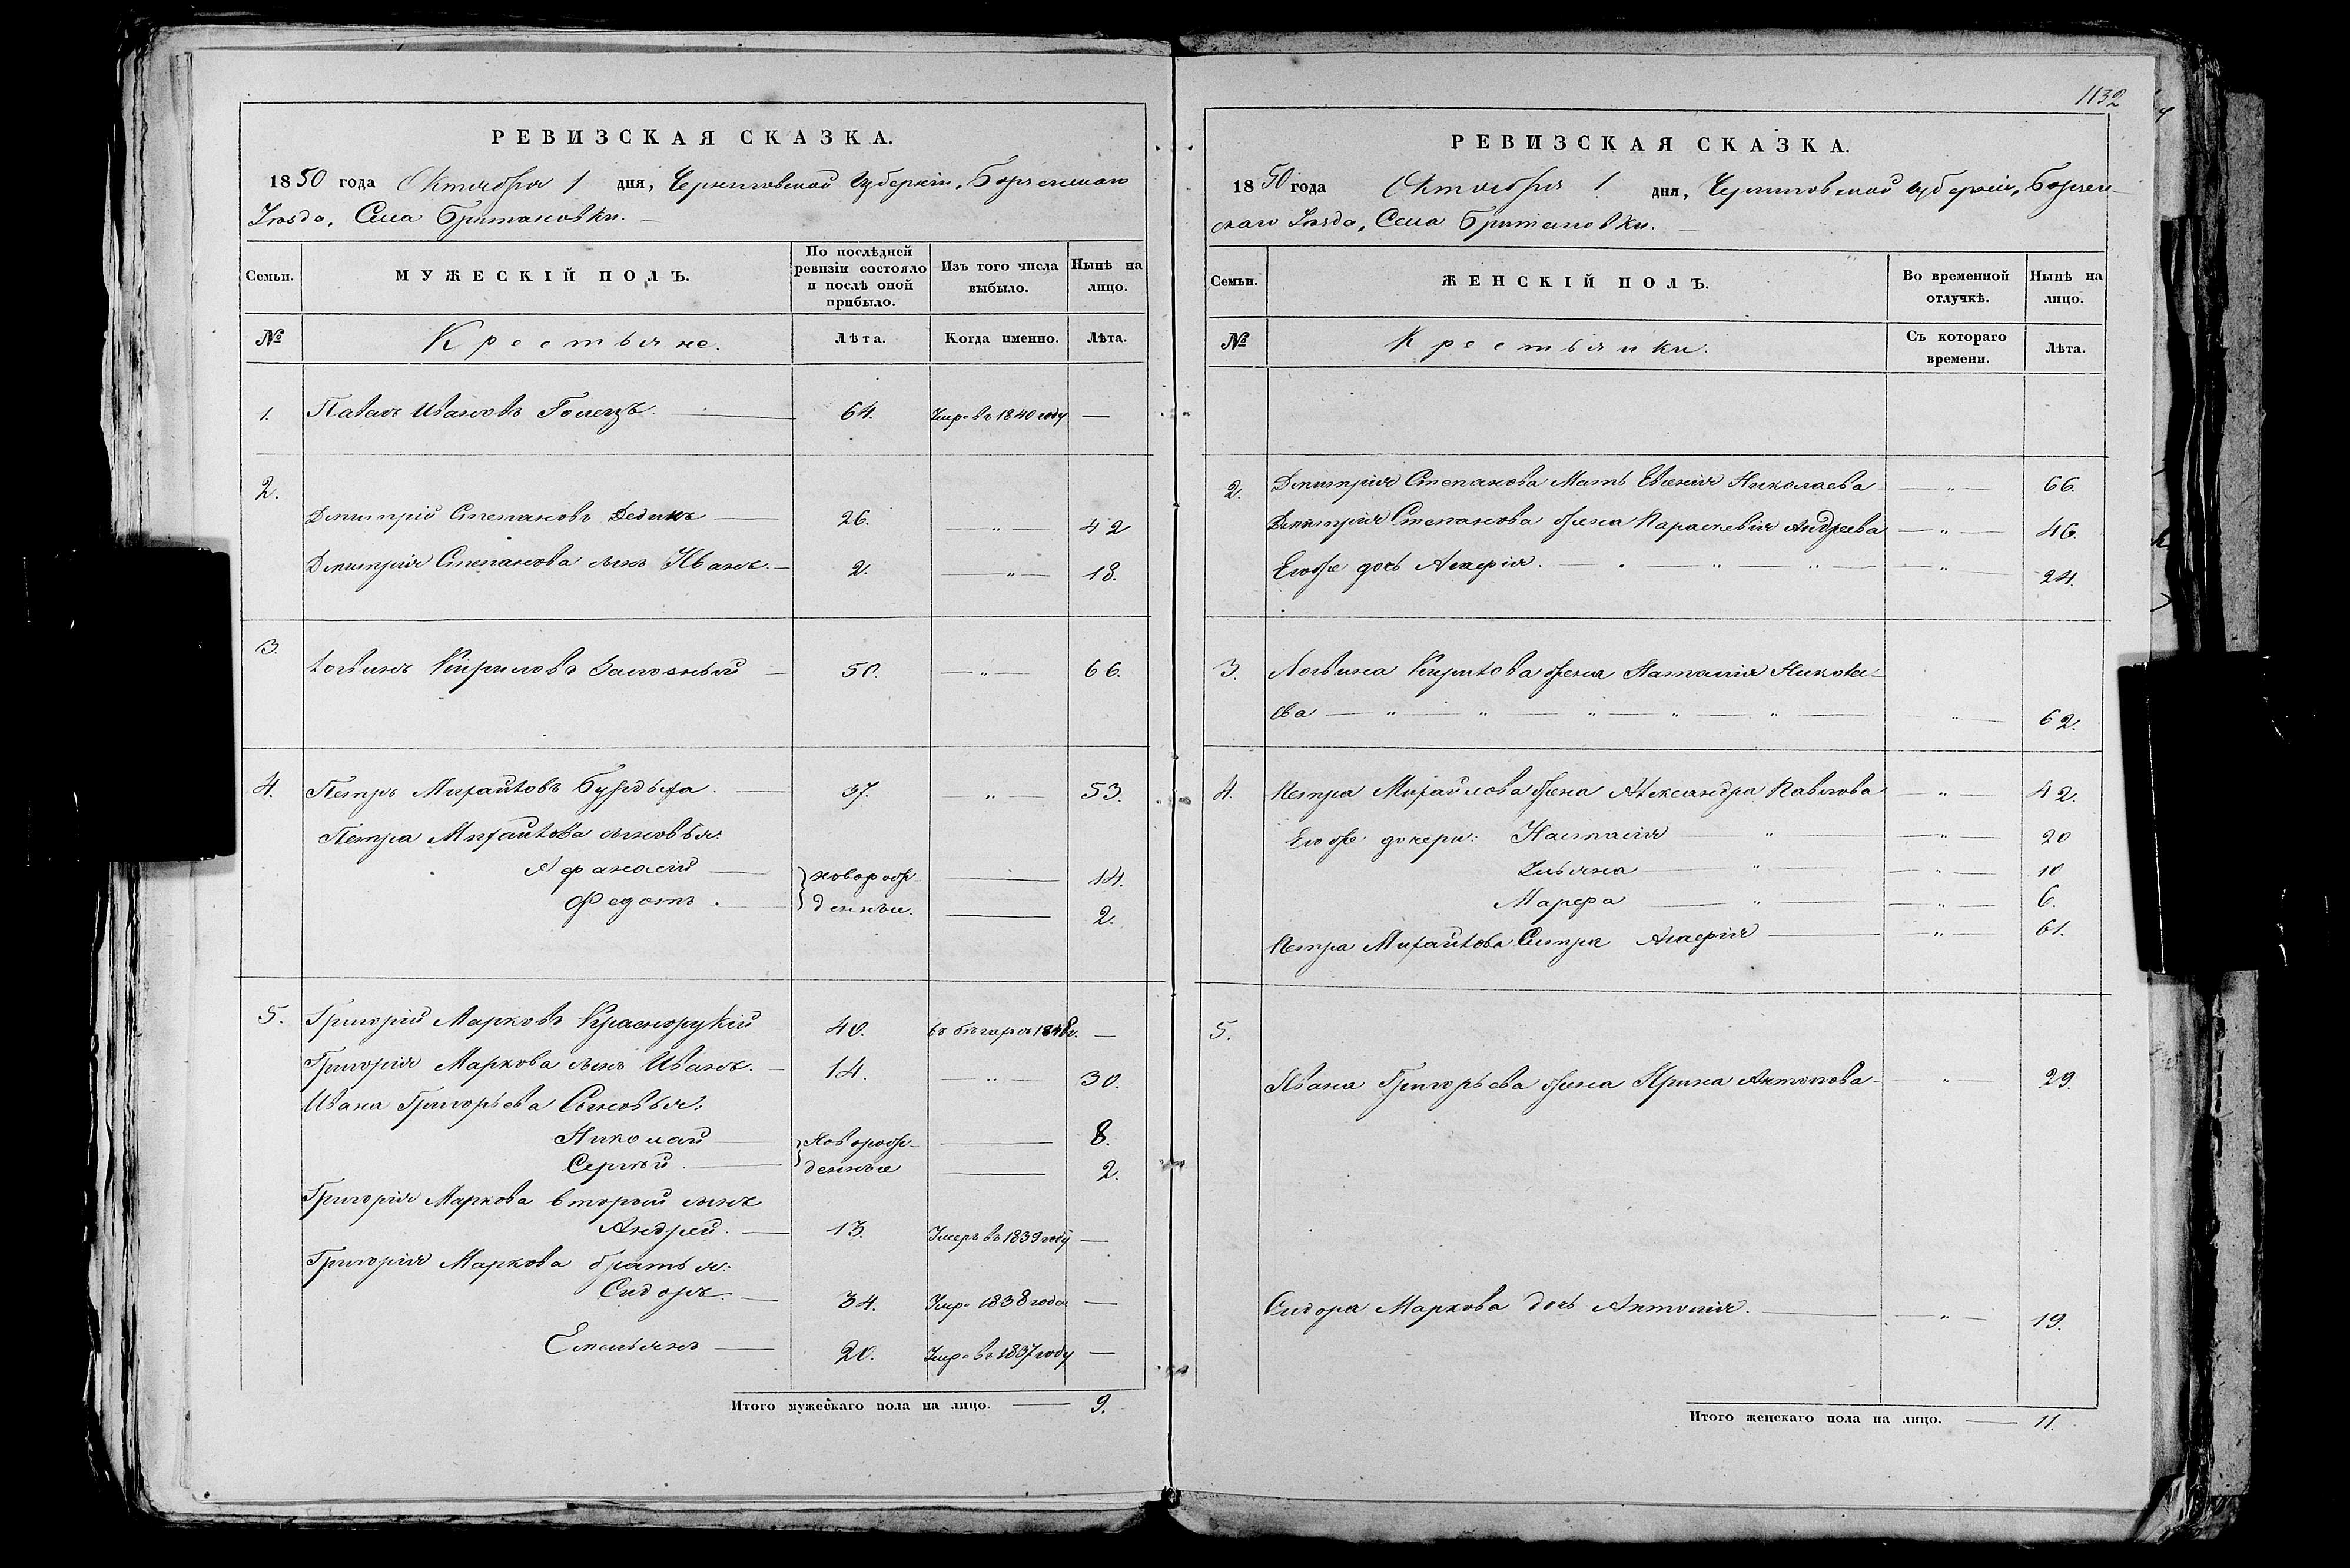 РЕВИЗСКАЯ СКАЗКА.
1850 года Октября 1 дня, Черниговской губернiи, Борзенскаго
Уѣзда, Села Британовки.
Семьи. МУЖЕСКІЙ ПОЛЪ. По послѣдней ревизіи состояло и послѣ оной прибыло. Изъ того числа выбыло. Нынѣ на лицо.
№ Крестьяне. Лѣта. Когда именно. Лѣта.
1. Павелъ Ивановъ 64. Умр. въ 1840 году —
2.
Дмитрій Степановъ Дедикъ 26. — " — 42
Дмитрія Степанова сынъ Иванъ. 2. — " — 18.
3.
Логвинъ Кириловъ 50. — " — 66.
4. Петръ Михайловъ 37. " — 53.
Петра Михайлова сыновья:
Афанасій новорож- — 14.
Федотъ. денные. — 2.
5. Григорій Марковъ Красноруkій 40. въ бѣгахъ съ 1848 г. —
Григорія Маркова сынъ Иванъ. 14. — " — 30.
Ивана Григорьева Сыновья:
Николай Новорож- — 8.
Сергѣй. денные — 2.
Григорія Маркова второй сынъ
Андрей. 13. Умеръ въ 1839 году —
Григорія Маркова братья:
Сидоръ. 34. Умр. 1838 года —
Емельянъ 20. Умр. въ 1837 году —
Итого мужескаго пола на лицо. — 9.
1132
РЕВИЗСКАЯ СКАЗКА.
1850 года Октября 1 дня, Черниговской губерніи, Борзен-
скаго Уѣзда, Села Британовки.
Семьи. ЖЕНСКІЙ ПОЛЪ. Во временной отлучкѣ. Нынѣ на лицо.
№ Крестьянки. Съ котораго времени. Лѣта.
2. Дмитрія Степанова Мать Евгенія Николаева — " — 66.
Дмитрія Степанова жена Параскевія Андреева — " — 46.
Егоже дочь Агафія. — " — 24.
3. Логвина Кирилова жена Наталія Никола-
ева — " — 62.
4. Петра Михайлова жена Александра Павлова — " — 42.
Егоже дочери: Настасія — " — 20
Ульяна — " — 10
Марфа — " — 6.
Петра Михайлова Сестра Агафія — " — 61.
5.
Ивана Григорьева жена Ирина Антонова — " 29.
Сидора Маркова дочь Антонія. — " — 19.
Итого женскаго пола на лицо. — 11.